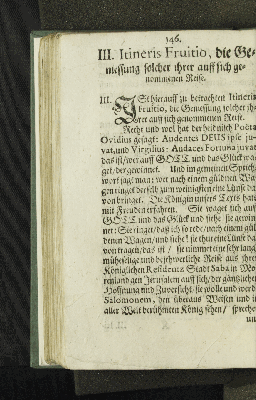 146.
III. Itineris Fruitio, die Ge-
niessung solcher ihrer auff sich ge-
nommenen Reise.
III. ISt hierauff zu betrachten Itineris
Fruitio, die Geniessung solcher ih-
rer auff sich genommenen Reise.
Recht und wol hat der heidnisch Poëta
Ovidius gesagt: Audentes DEUS ipse ju-
vat, und Virgilius: Audaces Fortuna juvat
das ist / wer auff GOTT und das Glück wa-
get, der gewinnet. Und im gemeinen Sprich-
wort sagt man: wer nach einem güldnen Wa-
gen ringet der sich zum wenigsten eine Lünse da-
von bringet. Die Königin unsers Texts hat
mit Freuden erfahren. Sie waget sich auff
GOTT und das Glück und siehe sie gewin-
net: Sie ringet / daß ich so rede / nach einem gül-
denen Wagen / und siehe! sie thut eine Lünse da-
von tragen / das ist / sie nimmet eine sehr lange
mühselige und beschwerliche Reise aus ihrer
Königlichen Residentz Stadt Saba in Mo-
renland gen Jerusalem auff sich / der gäntzlichen
Hoffnung und Zuversicht / sie wolle und werde
Salomonem, den überaus Weisen und in
aller Welt berühmten König sehen / spreche